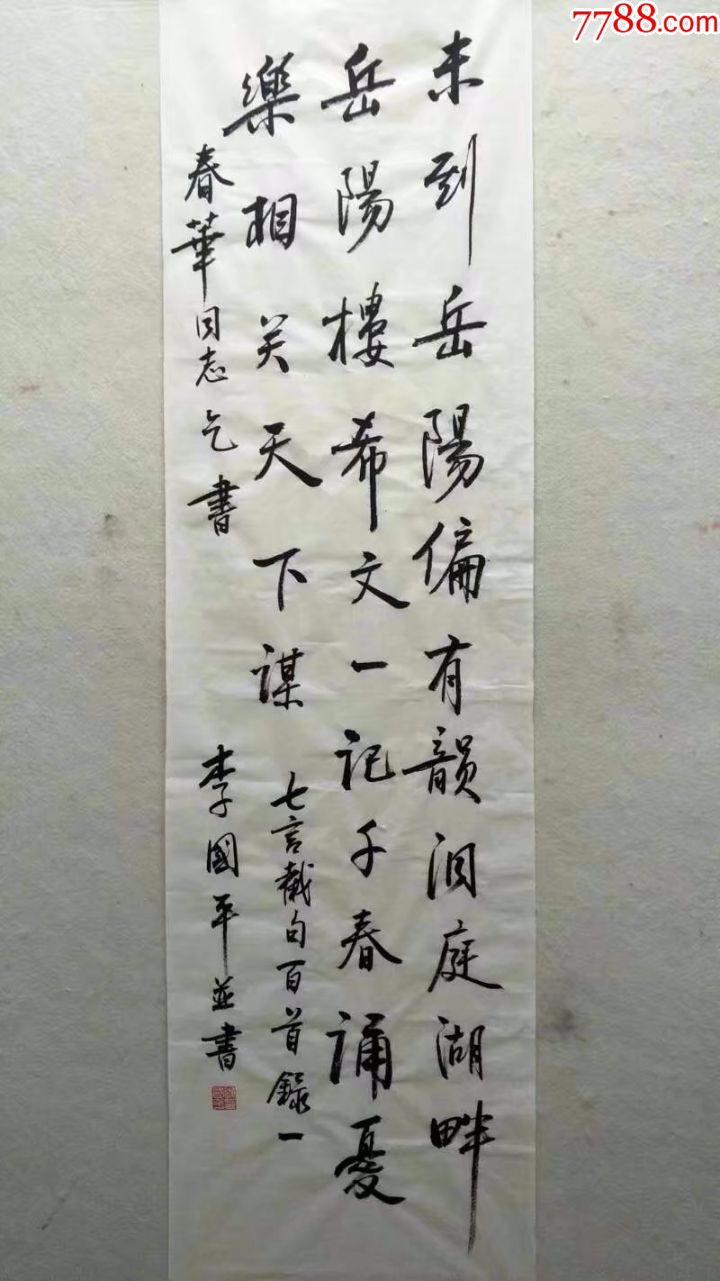 7788.com
未到岳陽偏有韻洞庭湖畔
岳陽樓希文一記千春誦憂
樂相关天下谋
七言截句百首錄一
春華同志乞書
李國平並書